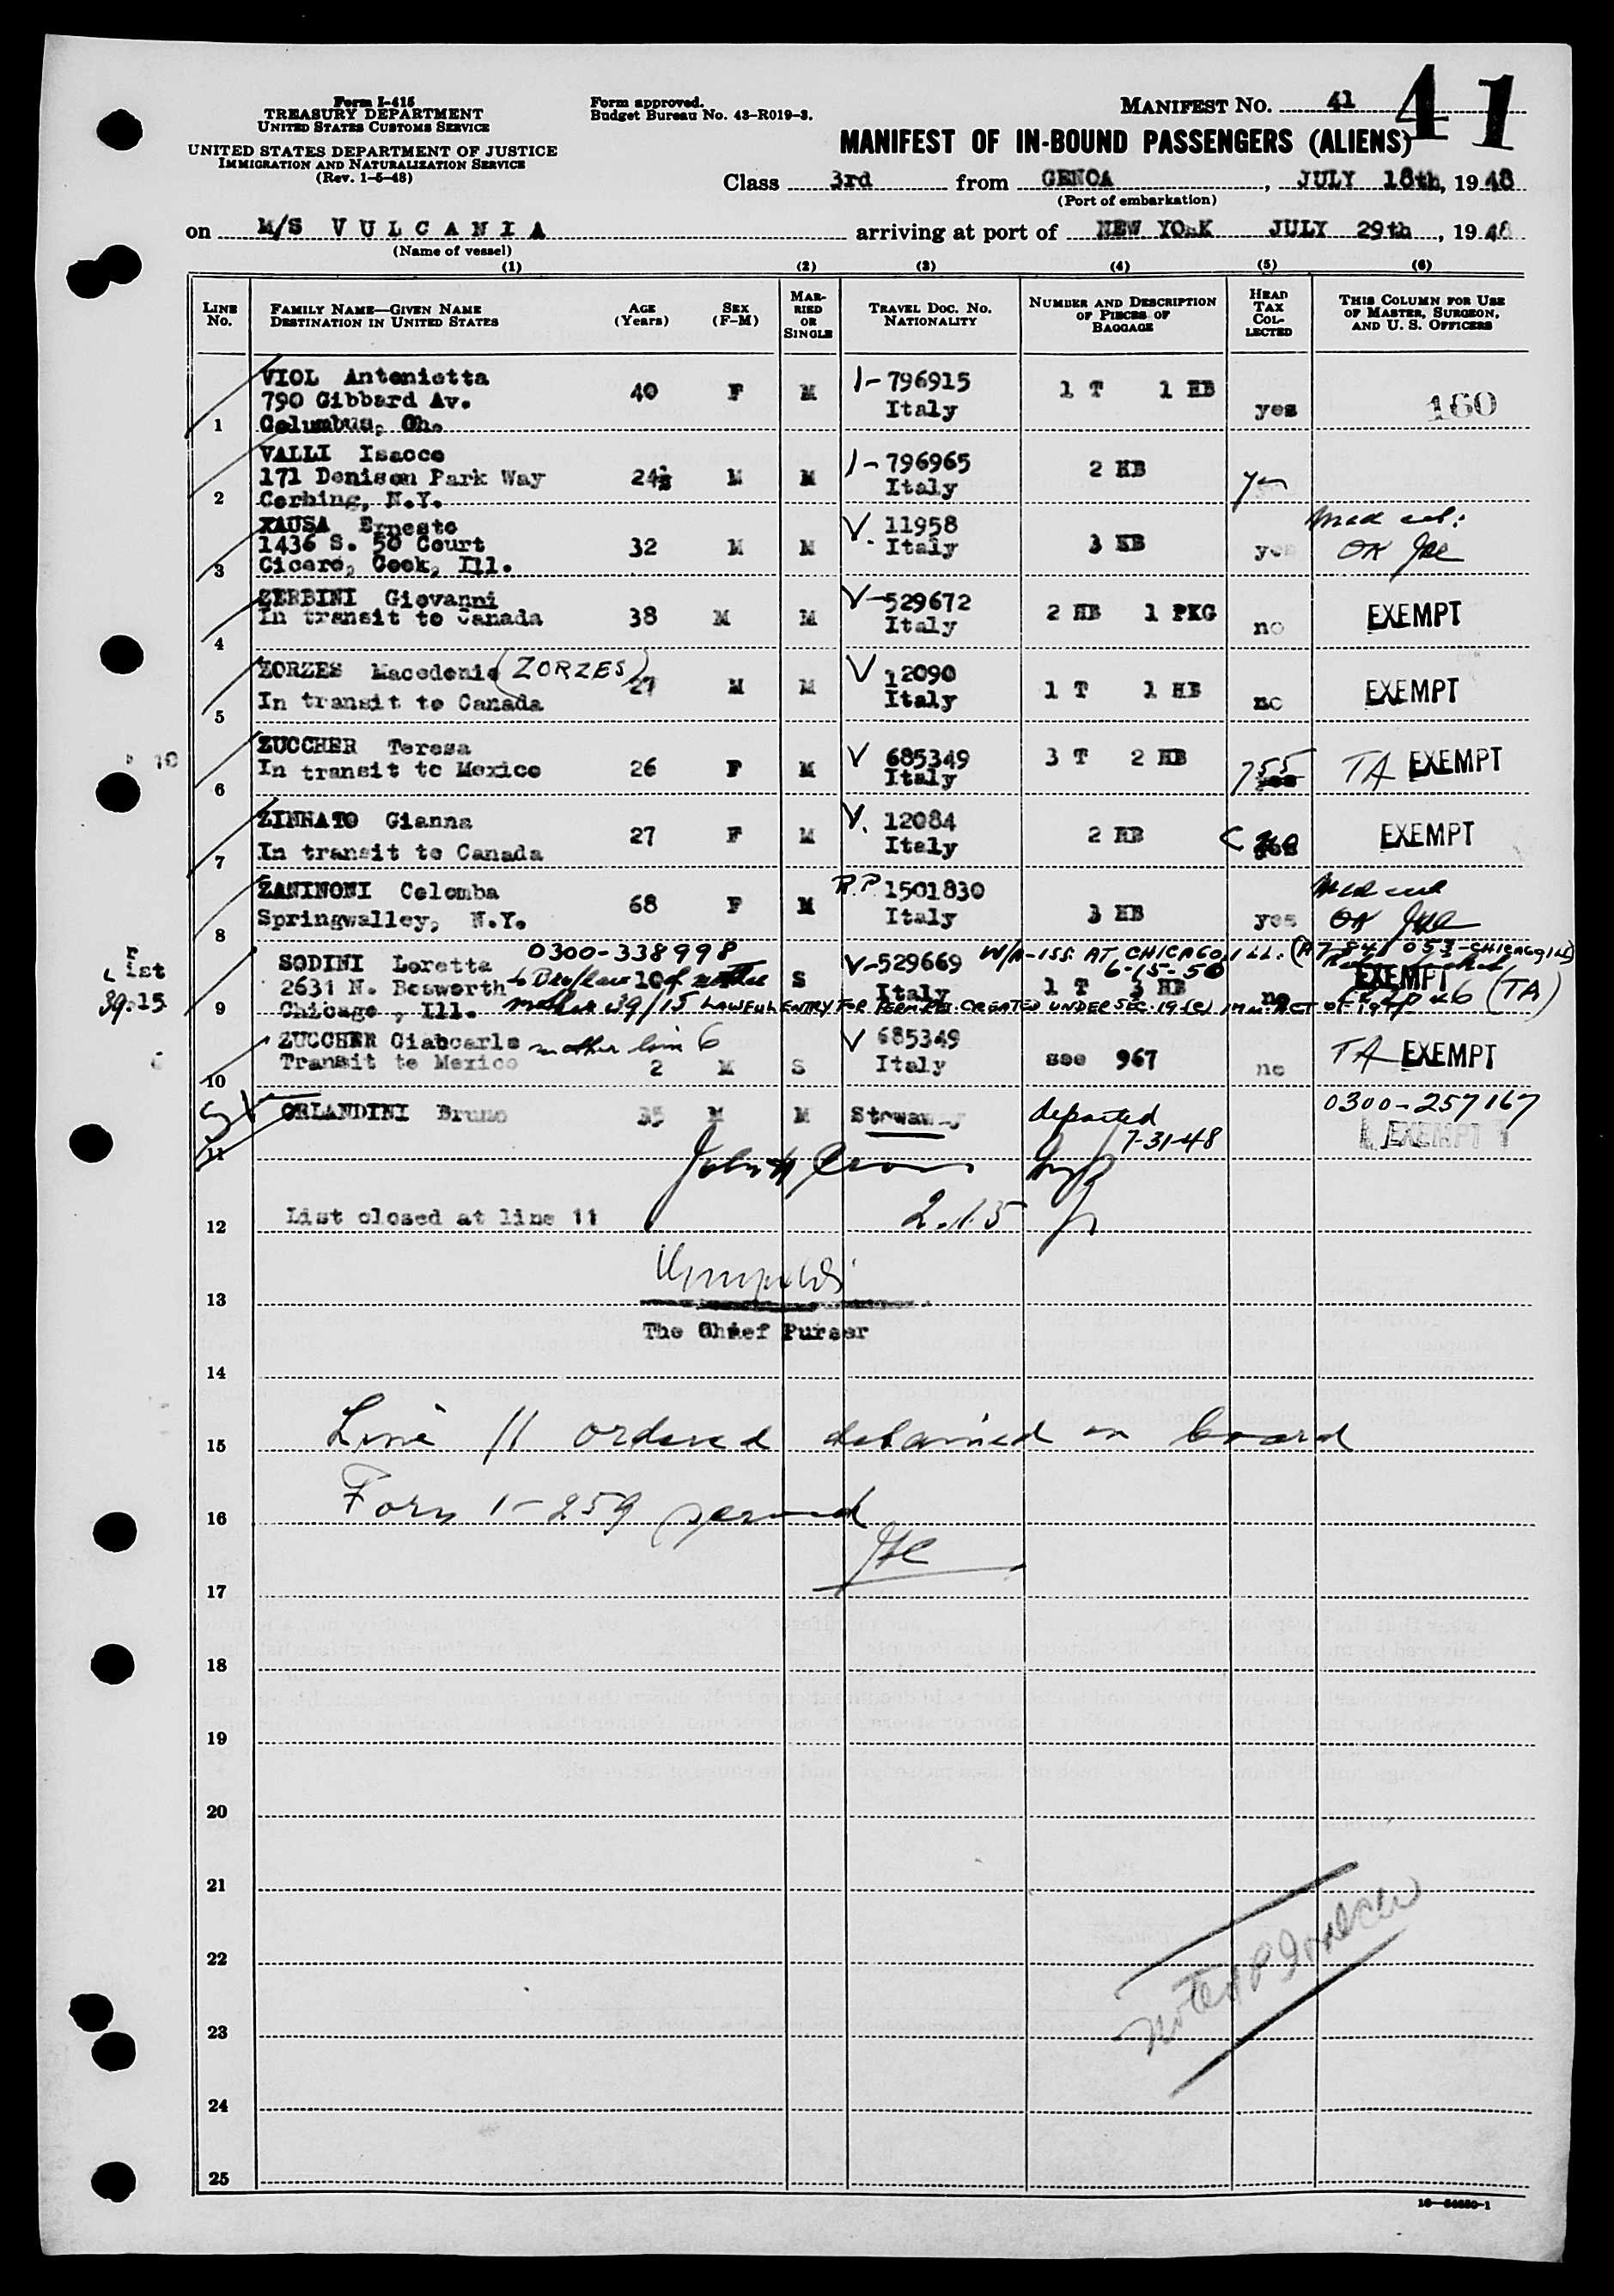 Form I-415
TREASURY DEPARTMENT
UNITED STATES CUSTOMS SERVICE
UNITED STATES DEPARTMENT OF JUSTICE
IMMIGRATION AND NATURALIZATION SERVICE
(Rev. 1-5-48)
Form approved.
Budget Bureau No. 43-R019-3.
MANIFEST NO. 41
41
MANIFEST OF IN-BOUND PASSENGERS (ALIENS)
Class 3rd from GENOA, JULY 18th, 1948
(Port of embarkation)
on M/S VULCANIA arriving at port of NEW YORK JULY 29th, 1948
(Name of vessel)
(1) (2) (3) (4) (5) (6)
LINE No.
FAMILY NAME—GIVEN NAME
DESTINATION IN UNITED STATES
AGE (Years)
SEX (F-M)
MARRIED OR SINGLE
TRAVEL DOC. NO.
NATIONALITY
NUMBER AND DESCRIPTION OF PIECES OF BAGGAGE
HEAD TAX COLLECTED
THIS COLUMN FOR USE OF MASTER, SURGEON, AND U. S. OFFICERS
VIOL Antonietta
790 Gibbard Av. 40 F M 1-796915 1 T 1 HB
1 Columbus, Oh. Italy yes 160
VALLI Isacco
171 Denison Park Way 24 M M 1-796965 2 HB
2 Corbing, N.Y. Italy yes
XAUSA Ernesto V. 11958 Med cert:
1436 S. 50 Court 32 M M Italy 3 HB yes OK
3 Cicero, Cook, Ill.
ZERBINI Giovanni V-529672
In transit to Canada 38 M M Italy 2 HB 1 PKG no EXEMPT
4
ZORZES Macedonio (ZORZES) V 12090
27 M M 1 T 1 HB EXEMPT
5 In transit to Canada Italy no
ZUCCHER Teresa V 685349 3 T 2 HB
In transit to Mexico 26 F M Italy yes TA EXEMPT
6
ZINNATO Gianna V. 12084
27 F M 2 HB EXEMPT
7 In transit to Canada Italy
ZANINONI Colomba R.P. 1501830 Med cert
68 F M 3 HB
8 Springwalley, N.Y. Italy yes OK
0300-338998 W/A-ISS. AT CHICAGO, ILL. (A7 841 053-CHICAGO ILL)
SODINI Loretta V-529669 6-15-50
2631 N. Bosworth 10 S Italy 1 T 3 HB no EXEMPT (TA)
9 Chicago, Ill. mother 39/15 LAWFUL ENTRY FOR PERM. RES. CREATED UNDER SEC. 19(c) IMM. ACT OF 1917
List
39.15
ZUCCHER Giabcarlo mother line 6 V 685349
Transit to Mexico 2 M S Italy see 967 no TA EXEMPT
10
ORLANDINI Bruno 35 M M Stowaway departed 0300-257167
11 7-31-48 EXEMPT
12 List closed at line 11 2.15
13
The Chief Purser
14
15 Line 11 ordered detained on board
16 Form I-259 served
17
18
19
20
21
22
23
24
25
noted
16—54650-1